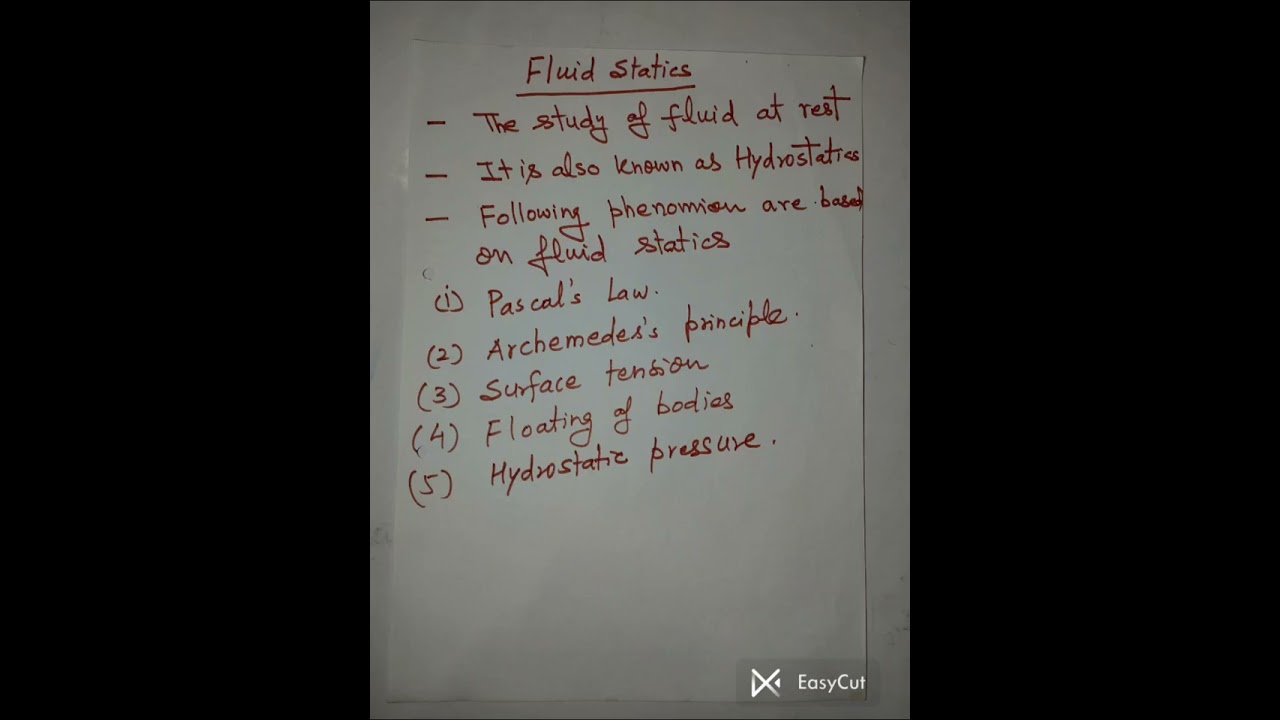 Fluid Statics
- The study of fluid at rest
- It is also known as Hydrostatics
- Following phenomion are based
on fluid statics
(i) Pascal's Law.
(2) Archemedes's principle.
(3) Surface tension
(4) Floating of bodies
(5) Hydrostatic pressure.
EasyCut